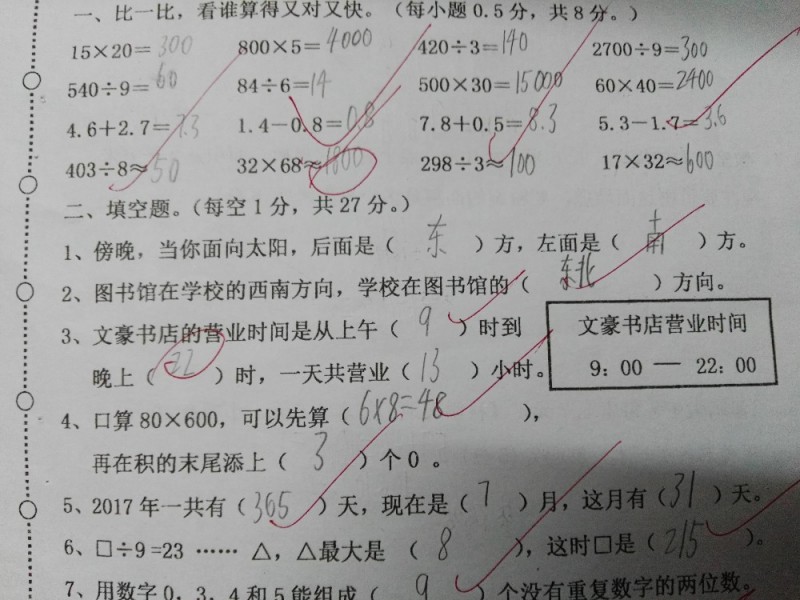 一、比一比，看谁算得又对又快。（每小题0.5分，共8分。）
15×20=300 800×5=4000 420÷3=140 2700÷9=300
540÷9=60 84÷6=14 500×30=15000 60×40=2400
4.6+2.7=7.3 1.4-0.8=0.8 7.8+0.5=8.3 5.3-1.7=3.6
403÷8≈50 32×68≈1800 298÷3≈100 17×32≈600
二、填空题。（每空1分，共27分。）
1、傍晚，当你面向太阳，后面是（ 东 ）方，左面是（ 南 ）方。
2、图书馆在学校的西南方向，学校在图书馆的（ 东北 ）方向。
3、文豪书店的营业时间是从上午（ 9 ）时到
晚上（ 22 ）时，一天共营业（ 13 ）小时。
文豪书店营业时间
9：00 — 22：00
4、口算80×600，可以先算（ 6×8=48 ），
再在积的末尾添上（ 3 ）个0。
5、2017年一共有（ 365 ）天，现在是（ 7 ）月，这月有（ 31 ）天。
6、□÷9=23 …… △，△最大是 （ 8 ），这时□是（ 215 ）。
7、用数字0，3，4和5能组成（ 9 ）个没有重复数字的两位数。